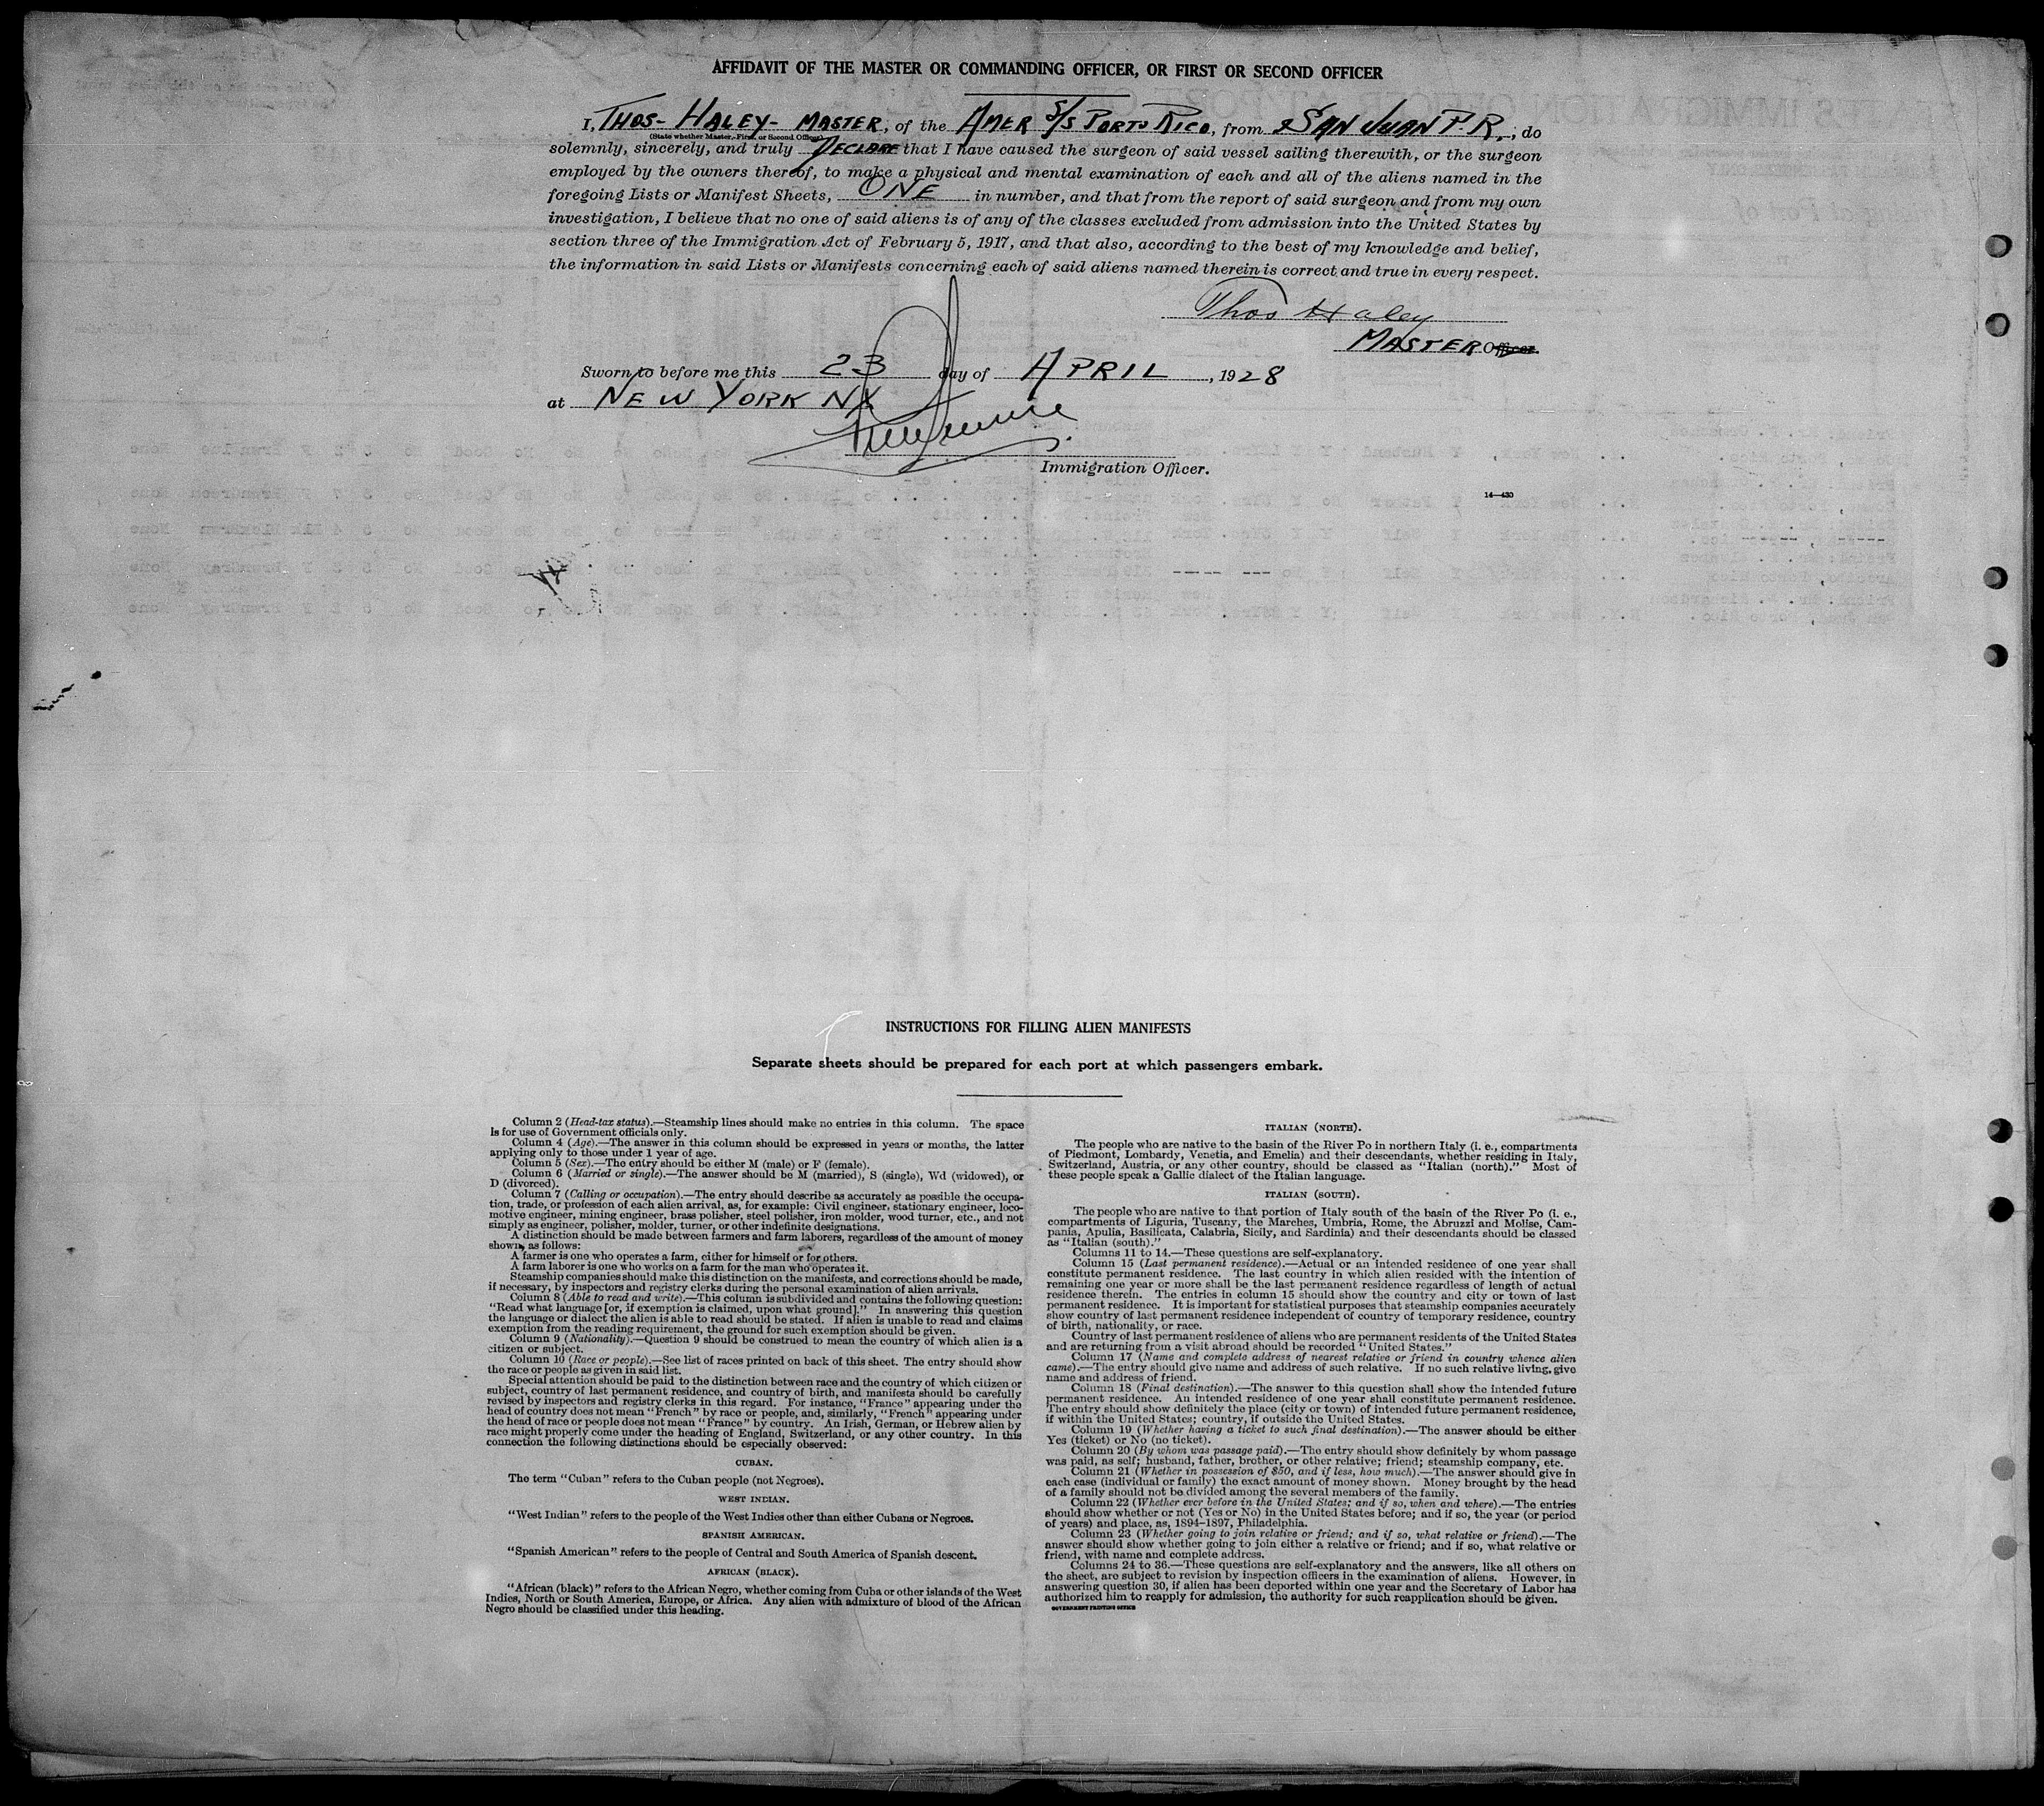 AFFIDAVIT OF THE MASTER OR COMMANDING OFFICER, OR FIRST OR SECOND OFFICER
I, THOS- HALEY- MASTER, of the AMER S/S PORTO RICO, from SAN JUAN P.R., do
(State whether Master, First, or Second Officer)
solemnly, sincerely, and truly DECLARE that I have caused the surgeon of said vessel sailing therewith, or the surgeon
employed by the owners thereof, to make a physical and mental examination of each and all of the aliens named in the
foregoing Lists or Manifest Sheets, ONE in number, and that from the report of said surgeon and from my own
investigation, I believe that no one of said aliens is of any of the classes excluded from admission into the United States by
section three of the Immigration Act of February 5, 1917, and that also, according to the best of my knowledge and belief,
the information in said Lists or Manifests concerning each of said aliens named therein is correct and true in every respect.
Thos Haley
MASTER Officer.
Sworn to before me this 23 day of APRIL, 1928
at NEW YORK NY
Immigration Officer.
14—430
INSTRUCTIONS FOR FILLING ALIEN MANIFESTS
Separate sheets should be prepared for each port at which passengers embark.
Column 2 (Head-tax status).—Steamship lines should make no entries in this column. The space
is for use of Government officials only.
Column 4 (Age).—The answer in this column should be expressed in years or months, the latter
applying only to those under 1 year of age.
Column 5 (Sex).—The entry should be either M (male) or F (female).
Column 6 (Married or single).—The answer should be M (married), S (single), Wd (widowed), or
D (divorced).
Column 7 (Calling or occupation).—The entry should describe as accurately as possible the occupa-
tion, trade, or profession of each alien arrival, as, for example: Civil engineer, stationary engineer, loco-
motive engineer, mining engineer, brass polisher, steel polisher, iron molder, wood turner, etc., and not
simply as engineer, polisher, molder, turner, or other indefinite designations.
A distinction should be made between farmers and farm laborers, regardless of the amount of money
shown, as follows:
A farmer is one who operates a farm, either for himself or for others.
A farm laborer is one who works on a farm for the man who operates it.
Steamship companies should make this distinction on the manifests, and corrections should be made,
if necessary, by inspectors and registry clerks during the personal examination of alien arrivals.
Column 8 (Able to read and write).—This column is subdivided and contains the following question:
"Read what language [or, if exemption is claimed, upon what ground]." In answering this question
the language or dialect the alien is able to read should be stated. If alien is unable to read and claims
exemption from the reading requirement, the ground for such exemption should be given.
Column 9 (Nationality).—Question 9 should be construed to mean the country of which alien is a
citizen or subject.
Column 10 (Race or people).—See list of races printed on back of this sheet. The entry should show
the race or people as given in said list.
Special attention should be paid to the distinction between race and the country of which citizen or
subject, country of last permanent residence, and country of birth, and manifests should be carefully
revised by inspectors and registry clerks in this regard. For instance, "France" appearing under the
head of country does not mean "French" by race or people, and, similarly, "French" appearing under
the head of race or people does not mean "France" by country. An Irish, German, or Hebrew alien by
race might properly come under the heading of England, Switzerland, or any other country. In this
connection the following distinctions should be especially observed:
CUBAN.
The term "Cuban" refers to the Cuban people (not Negroes).
WEST INDIAN.
"West Indian" refers to the people of the West Indies other than either Cubans or Negroes.
SPANISH AMERICAN.
"Spanish American" refers to the people of Central and South America of Spanish descent.
AFRICAN (BLACK).
"African (black)" refers to the African Negro, whether coming from Cuba or other islands of the West
Indies, North or South America, Europe, or Africa. Any alien with admixture of blood of the African
Negro should be classified under this heading.
ITALIAN (NORTH).
The people who are native to the basin of the River Po in northern Italy (i. e., compartments
of Piedmont, Lombardy, Venetia, and Emelia) and their descendants, whether residing in Italy,
Switzerland, Austria, or any other country, should be classed as "Italian (north)." Most of
these people speak a Gallic dialect of the Italian language.
ITALIAN (SOUTH).
The people who are native to that portion of Italy south of the basin of the River Po (i. e.,
compartments of Liguria, Tuscany, the Marches, Umbria, Rome, the Abruzzi and Molise, Cam-
pania, Apulia, Basilicata, Calabria, Sicily, and Sardinia) and their descendants should be classed
as "Italian (south)."
Columns 11 to 14.—These questions are self-explanatory.
Column 15 (Last permanent residence).—Actual or an intended residence of one year shall
constitute permanent residence. The last country in which alien resided with the intention of
remaining one year or more shall be the last permanent residence regardless of length of actual
residence therein. The entries in column 15 should show the country and city or town of last
permanent residence. It is important for statistical purposes that steamship companies accurately
show country of last permanent residence independent of country of temporary residence, country
of birth, nationality, or race.
Country of last permanent residence of aliens who are permanent residents of the United States
and are returning from a visit abroad should be recorded "United States."
Column 17 (Name and complete address of nearest relative or friend in country whence alien
came).—The entry should give name and address of such relative. If no such relative living, give
name and address of friend.
Column 18 (Final destination).—The answer to this question shall show the intended future
permanent residence. An intended residence of one year shall constitute permanent residence.
The entry should show definitely the place (city or town) of intended future permanent residence,
if within the United States; country, if outside the United States.
Column 19 (Whether having a ticket to such final destination).—The answer should be either
Yes (ticket) or No (no ticket).
Column 20 (By whom was passage paid).—The entry should show definitely by whom passage
was paid, as self; husband, father, brother, or other relative; friend; steamship company, etc.
Column 21 (Whether in possession of $50, and if less, how much).—The answer should give in
each case (individual or family) the exact amount of money shown. Money brought by the head
of a family should not be divided among the several members of the family.
Column 22 (Whether ever before in the United States; and if so, when and where).—The entries
should show whether or not (Yes or No) in the United States before; and if so, the year (or period
of years) and place, as, 1894-1897, Philadelphia.
Column 23 (Whether going to join relative or friend; and if so, what relative or friend).—The
answer should show whether going to join either a relative or friend; and if so, what relative or
friend, with name and complete address.
Columns 24 to 36.—These questions are self-explanatory and the answers, like all others on
the sheet, are subject to revision by inspection officers in the examination of aliens. However, in
answering question 30, if alien has been deported within one year and the Secretary of Labor has
authorized him to reapply for admission, the authority for such reapplication should be given.
GOVERNMENT PRINTING OFFICE